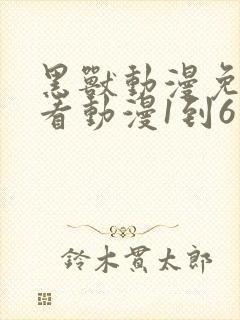 黑獸動漫免
看動漫1到6
鈴木貫太郎